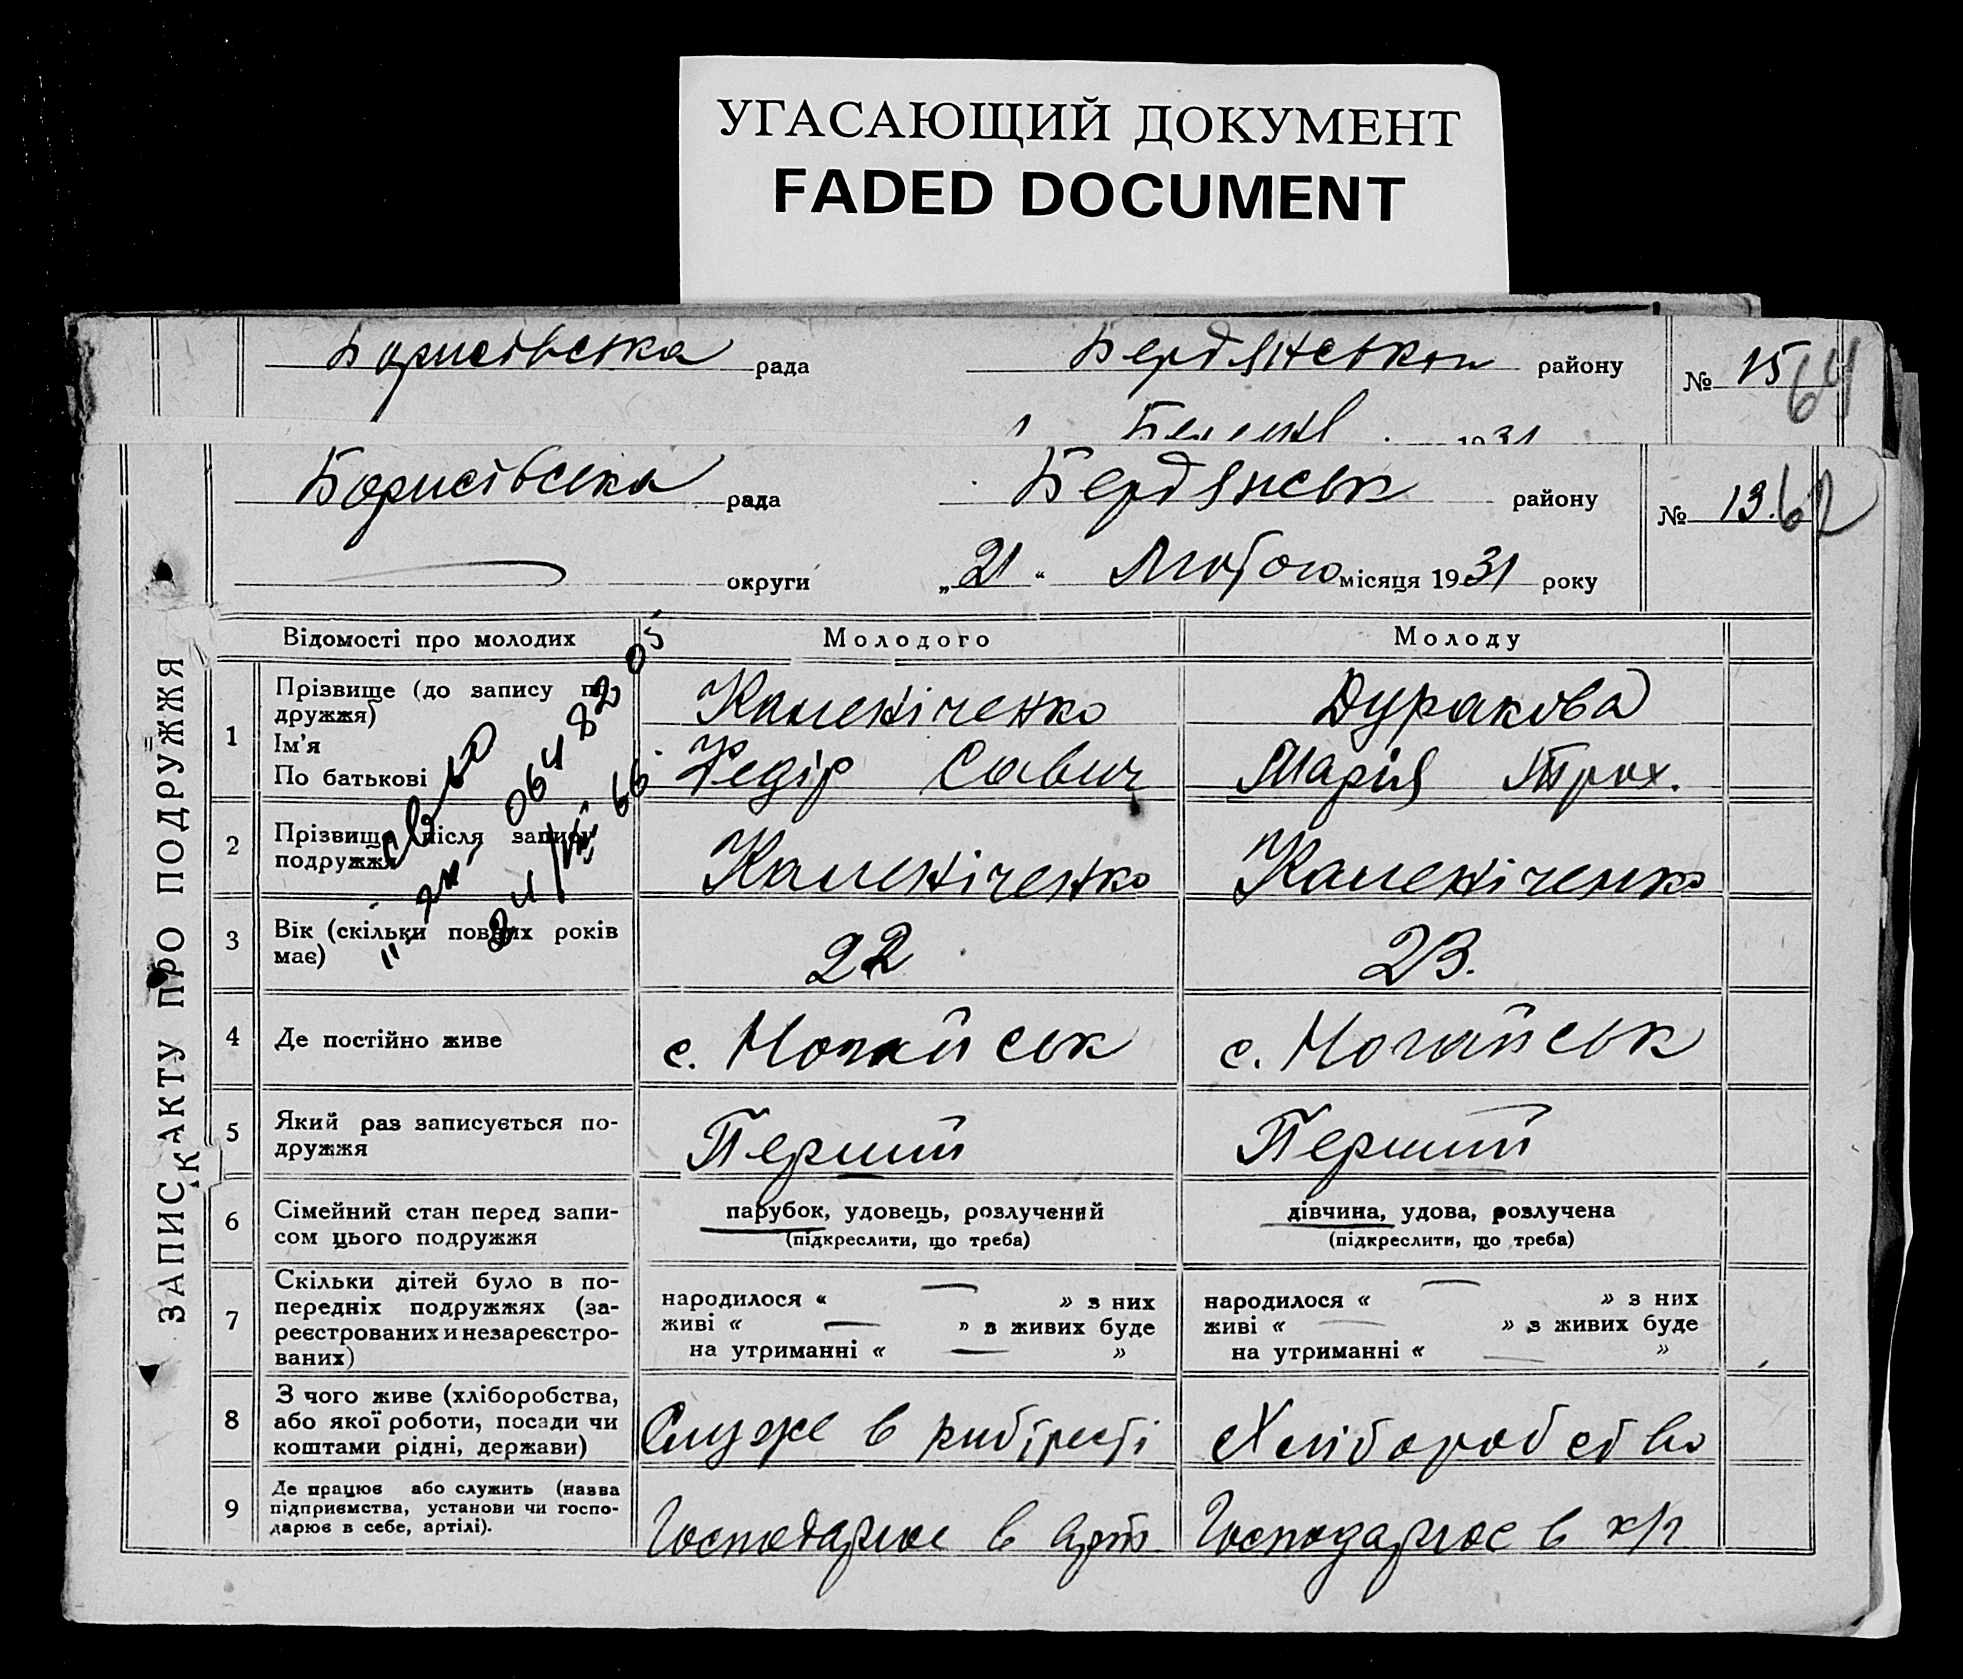 УГАСАЮЩИЙ ДОКУМЕНТ
FADED DOCUMENT
Борисівська рада Бердянського району № 15 64
1931
Борисівська рада Бердянськ району № 13. 62
округи „21“ Лютого місяця 1931 року
ЗАПИС АКТУ ПРО ПОДРУЖЖЯ
Відомості про молодих Молодого Молоду
1 Прізвище (до запису по-
дружжя) Каленіченко Дуракова
Ім'я
По батькові Федір Савич Марія Трох.
2 Прізвище після запису
подружжя Каленіченко Каленіченко
3 Вік (скільки повних років
має) 22 23.
4 Де постійно живе с. Ногайськ с. Ногайськ
5 Який раз записується по-
дружжя Перший Перший
6 Сімейний стан перед запи-
сом цього подружжя
парубок, удовець, розлучений
(підкреслити, що треба)
дівчина, удова, розлучена
(підкреслити, що треба)
7 Скільки дітей було в по-
передніх подружжях (за-
реєстрованих и незареєстро-
ваних)
народилося « — » з них
живі « — » з живих буде
на утриманні « — »
народилося « — » з них
живі « — » з живих буде
на утриманні « — »
8 З чого живе (хліборобства,
або якої роботи, посади чи
коштами рідні, держави)
Служе в рибтресті Хліборобство
9 Де працює або служить (назва
підприємства, установи чи госпо-
дарює в себе, артілі).
Господарює в арт Господарює в к/г